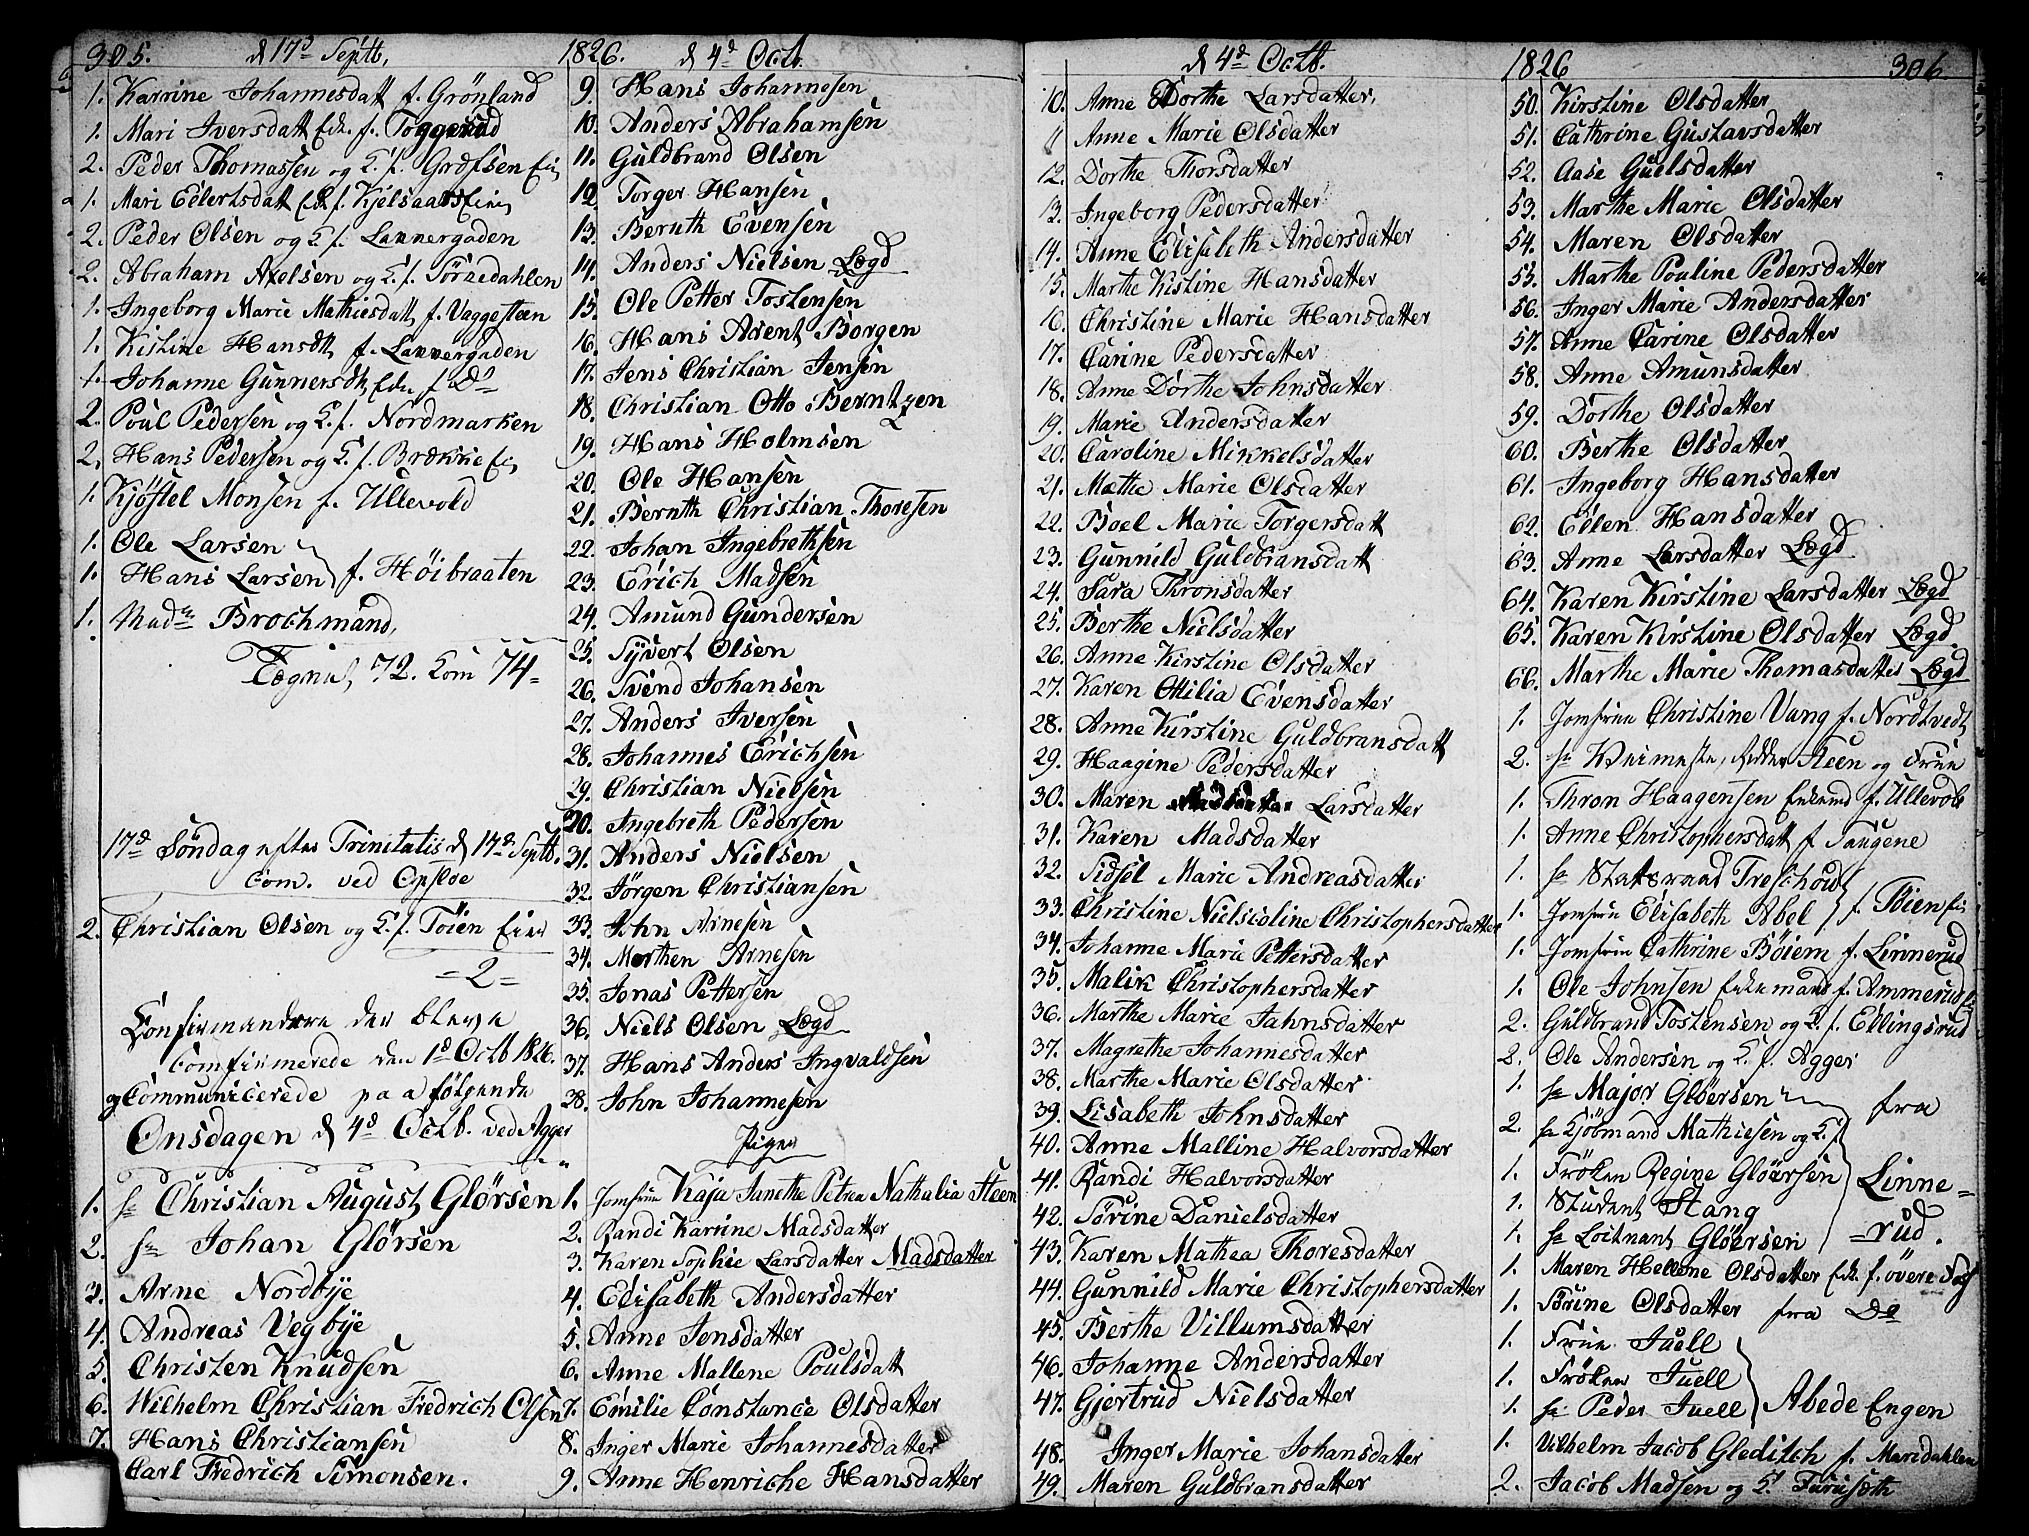 305. d 17d Septb, 1826. d 4d Octb.
1. Karrine Johannesdatt f. Grönland
1. Mari Iversdatt Enk. f. Toggerud
2. Peder Thomassen og K. f. Grefsen Ei,
1. Mari Eilertsdatt Enk f. Kjelsaas Eie,
2. Peder Olsen og K. f. Lannergaden
2. Abraham Axelsen og K. f. Törnedahlen
1. Ingeborg Marie Mathiesdatt, f. Vaggesteen
1. Kistine Hansdt, f. Lannergaden
1. Johanne Gunnersdt, Enke f. Do
2. Poul Pedersen og K. f. Nordmarken
2. Hans Pedersen og K. f. Brække Ei,
1. Kjöstel Monsen f. Ullevold
1. Ole Larsen
1. Hans Larsen f. Höibraaten
1. Madm Brochmand,
72. Kom 74=
17d Söndag efter Trinitatis d 17d Septb.
Com. ved Opsloe
2. Christian Olsen og K. f. Töien Eier
=2=
Confirmandere der bleve
Comfirmerede den 1d Octb 1826.
og Communicerede paa fölgende
Onsdagen d 4d Octb. ved Agger
1. Hr Christian August Glörsen
2. Hr Johan Glörsen
3. Arne Nordbye
4. Andreas Vegbye
5. Christen Knudsen
6. Wilhelm Christian Fredrich Olsen
7. Hans Christiansen
Carl Fredrich Simonsen.
9. Hans Johannesen
10. Anders Abrahamsen
11. Guldbrand Olsen
12. Torger Hansen
13. Bernth Evensen
14. Anders Nielsen Lægd
15. Ole Petter Tostensen
16. Hans Arent Borgen
17. Jens Christian Jensen
18. Christian Otto Berntzen
19. Hans Holmsen
20. Ole Hansen
21. Bernth Christian Thoresen
22. Johan Ingebrethsen
23. Erich Madsen
24. Amund Gundersen
25. Syvert Olsen
26. Svend Johansen
27. Anders Iversen
28. Johannes Erichsen
29. Christian Nielsen
30. Ingebreth Pedersen
31. Anders Nielsen
32. Jörgen Christiansen
33. John Arnesen
34. Morthen Arnesen
35. Jonas Pettersen
36. Niels Olsen Lægd
37. Hans Anders Ingvaldsen
28. John Johannesen
Piger
1. Jomfrue Kaja Janethe Petrea Nathalia Steen
2. Randi Karrine Madsdatter
3. Karen Sophie Larsdatter Madsdatter
4. Elisabeth Andersdatter
5. Anne Jensdatter
6. Anne Mallene Poulsdatt
7. Emilie Constance Olsdatter
8. Inger Marie Johannesdatter
9. Anne Henriche Hansdatter
d 4d Octb. 1826 306.
10. Anne Dorthe Larsdatter,
11 Anne Marie Olsdatter
12. Dorthe Thorsdatter
13. Ingeborg Pedersdatter
14. Anne Elisabeth Andersdatter
15. Marthe Kistine Hansdatter
16. Christine Marie Hansdatter
17. Carine Pedersdatter
18. Anne Dorthe Johnsdatter
19. Marie Andersdatter
20. Caroline Mikkelsdatter
21. Mathe Marie Olsdatter
22. Boel Marie Torgersdatt
23. Gunnild Guldbransdatt
24. Sara Thronsdatter
25. Berthe Nielsdatter
26. Anne Kirstine Olsdatter
27. Karen Otilia Evensdatter
28. Anne Kirstine Guldbransdatt
29. Haagine Pedersdatter
30. Maren Larsdatter
31. Karen Madsdatter
32. Sidsel Marie Andreasdatter
33. Christine Nielscoline Christophersdatter
34. Johanne Marie Pettersdatter
35. Malik Christophersdatter
36. Marthe Marie Jahnsdatter
37. Magrethe Johannesdatter
38. Marthe Marie Olsdatter
39. Lisabeth Johnsdatter
40. Anne Malline Halvorsdatter
41. Randi Halvorsdatter
42. Sörine Danielsdatter
43. Karen Mathea Thoresdatter
44. Gunnild Marie Christophersdatter
45. Berthe Villumsdatter
46. Johanne Andersdatter
47. Gjertrud Nielsdatter
48. Inger Marie Johansdatter
49. Maren Guldbransdatter
50. Kirstine Olsdatter
51. Cathrine Gustavsdatter
52. Aase Guulsdatter
53. Marthe Marie Olsdatter
54. Maren Olsdatter
55. Marthe Pouline Pedersdatter
56. Inger Marie Andersdatter
57. Anne Carine Olsdatter
58. Anne Amunsdatter
59. Dorthe Olsdatter
60. Berthe Olsdatter
61. Ingeborg Hansdatter
62. Ellen Hansdatter
63. Anne Larsdatter Lægd
64. Karen Kirstine Larsdatter Lægd
65. Karen Kirstine Olsdatter Lægd
66. Marthe Marie Thomasdatter Lægd
1. Jomfrue Christine Vang f. Nordtvedt,
2. Hr Steen og Frue
1. Thron Haagensen Enkemd f. Ullevold
1. Anne Christophersdatt f. Taugene
1. Hr Statsraad Treschow
1. Jomfru Elisabeth Abel f. Töien Ei,
1. Jomfrue Cathrine Böiem f. Linnerud
1. Ole Johnsen Enkemand f. Ammerud Ei
2. Guldbrand Tostensen og K. f. Ellingsrud
2. Ole Andersen og K. f. Agger
1. Hr Major Glöersen
2. Hr Kjöbmand Mathiesen og K. fra
1. Fröken Regine Glöersen Linne=
1. Student Stang
1. Hr Loitnant Glöersen =rud.
1. Maren Hellene Olsdatter Enk. f. övere
1. Sörine Olsdatter fra Do
1. Frue Juell
1. Fröken Juell
1. Hr Peder Juell Abede Engen
1. Vilhelm Jacob Gleditch f. Maridahlen
2. Jacob Madsen og K. Furusæth